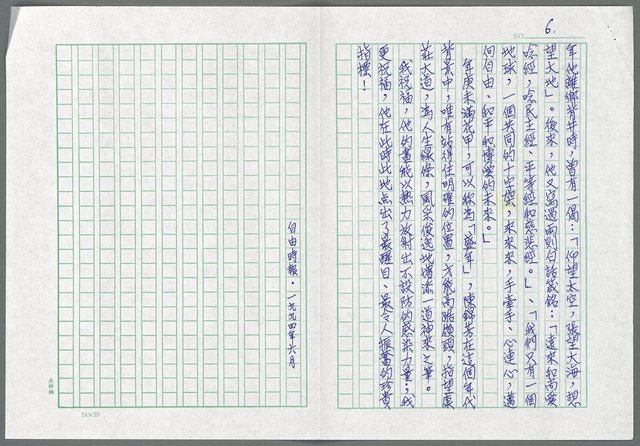 NO. 6.
年他離鄉背井時，曾有一偈：「仰望太空，張望大海，想
望大地」。後來，他又寫過兩則白話箴銘：「遠來和尚愛
唸經，唸民主經、平等經和慈悲經。」、「我們只有一個
地球，一個共同的十字架，來來來，手牽手、心連心，邁
向自由、和平和博愛的未來。」
年庚未滿花甲，可以稱為「盛年」，陳錦芳在這個年代
背景中，唯有站得住明確的位置，才能高瞻遠矚，指望康
莊大道，為人生線條，風采俊逸地增添一道神來之筆。
我祝福，他的畫能以熱力放射出不設防的感染力量；我
更祝福，他在此時此地点出了最醒目、最令人振奮的珍貴
指標！
自由時報・一九九四年六月
24×25